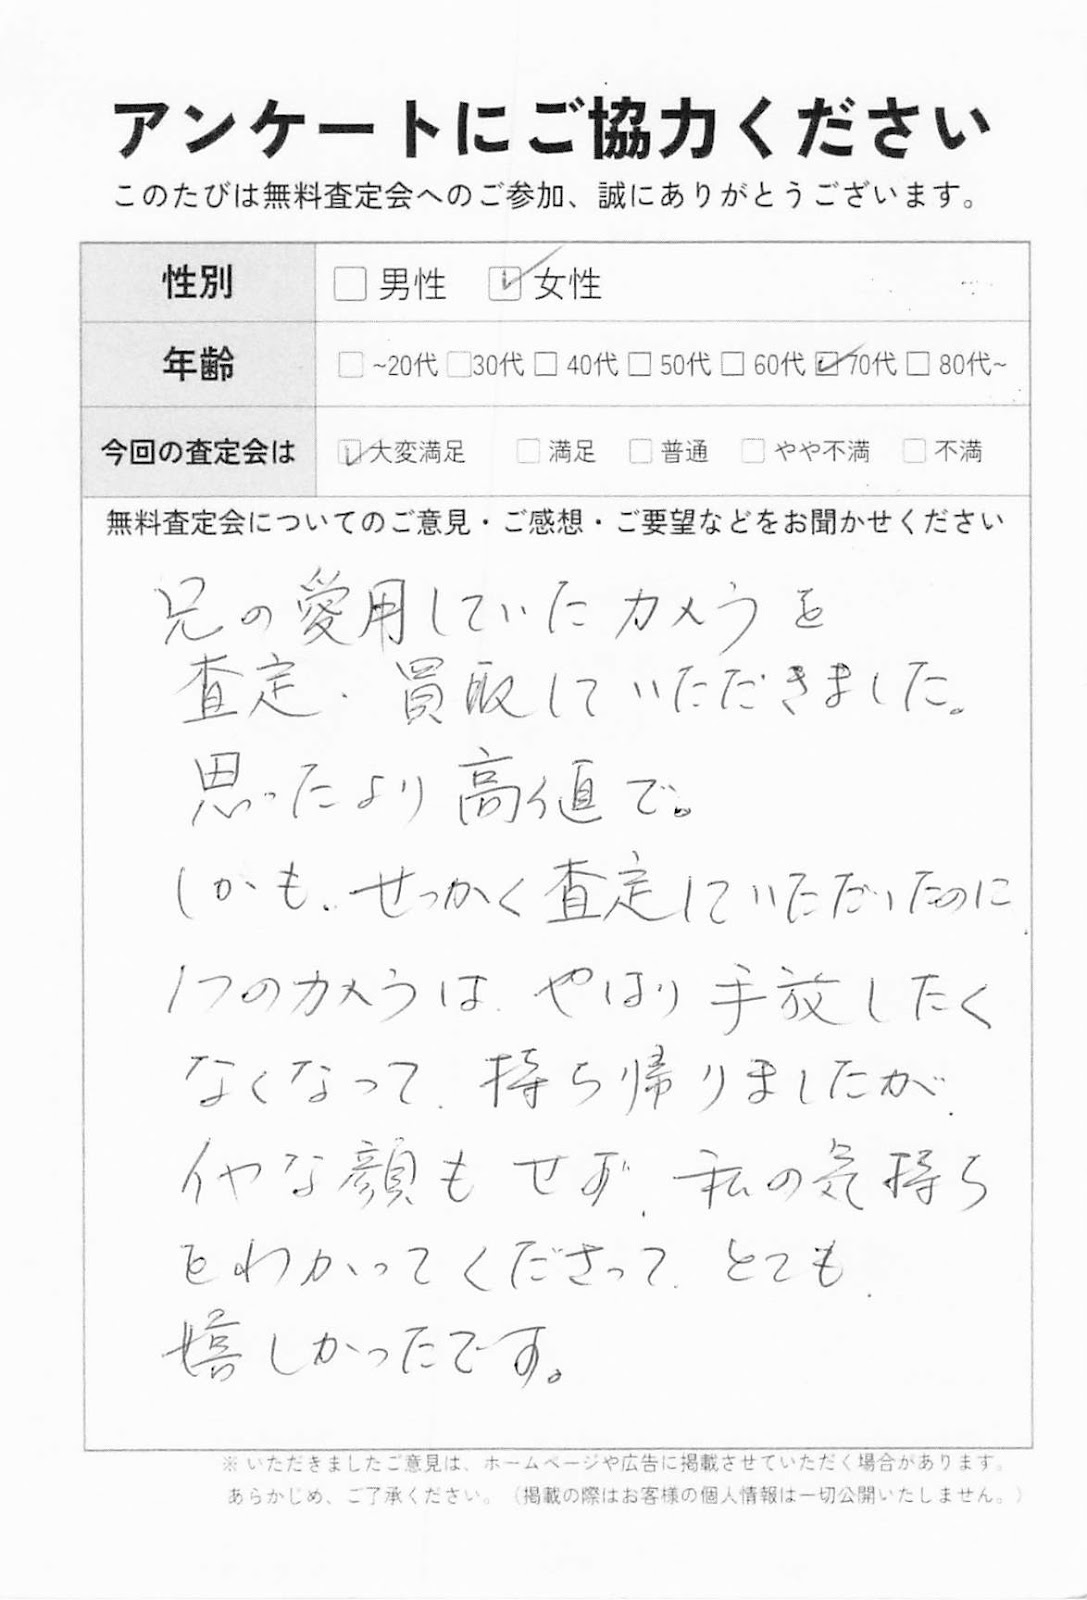 アンケートにご協力ください
このたびは無料査定会へのご参加、誠にありがとうございます。
性別 □ 男性 ☑ 女性
年齢 □ ~20代 □ 30代 □ 40代 □ 50代 □ 60代 ☑ 70代 □ 80代~
今回の査定会は ☑ 大変満足 □ 満足 □ 普通 □ やや不満 □ 不満
無料査定会についてのご意見・ご感想・ご要望などをお聞かせください
兄の愛用していたカメラを
査定・買取していただきました。
思ったより高値で。
しかも、せっかく査定していただいたのに
1つのカメラは、やはり手放したく
なくなって、持ち帰りましたが、
イヤな顔もせず、私の気持ち
をわかってくださって、とても
嬉しかったです。
※いただきましたご意見は、ホームページや広告に掲載させていただく場合があります。
あらかじめ、ご了承ください。（掲載の際はお客様の個人情報は一切公開いたしません。）